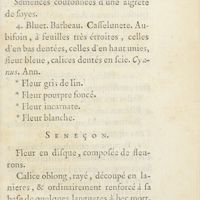 Semences couronnées d'une aigrete
de soyes.
4. Bluet. Barbeau. Casselunete. Au-
bifoin, à feuilles très étroites, celles
d'en bas dentées, celles d'en haut unies,
fleur bleue, calices dentés en scie. Cya-
nus. Ann.
* Fleur gris de lin.
* Fleur pourpre foncé.
* Fleur incarnate.
* Fleur blanche.
SENEÇON.
Fleur en disque, composée de fleu-
rons.
Calice oblong, rayé, découpé en la-
nieres, & ordinairement renforcé à sa
base de quelques languetes à bec mort.